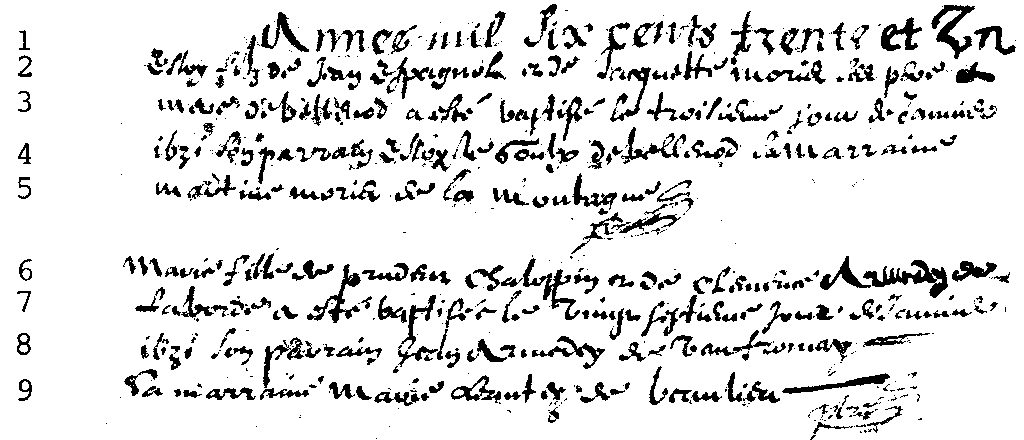 1 Annee mil six cents trente et Un
2 Elloy filz de Jean Espagnol et de Jacquette morid sa
3 mere de bellenod a esté baptisé le troisieme jour de Janvier
4 1631 son parrain Elloy le de bellenod sa marraine
5 martine morid de la montagne
6 Marie fille de prudent Chaloppin et de Clemence Armedey de
7 Laborde a esté baptisée le vingt septieme jour de Janvier
8 1631 son parrain Jean Armedey de Vaufromay
9 Sa marraine Marie de beaulieu